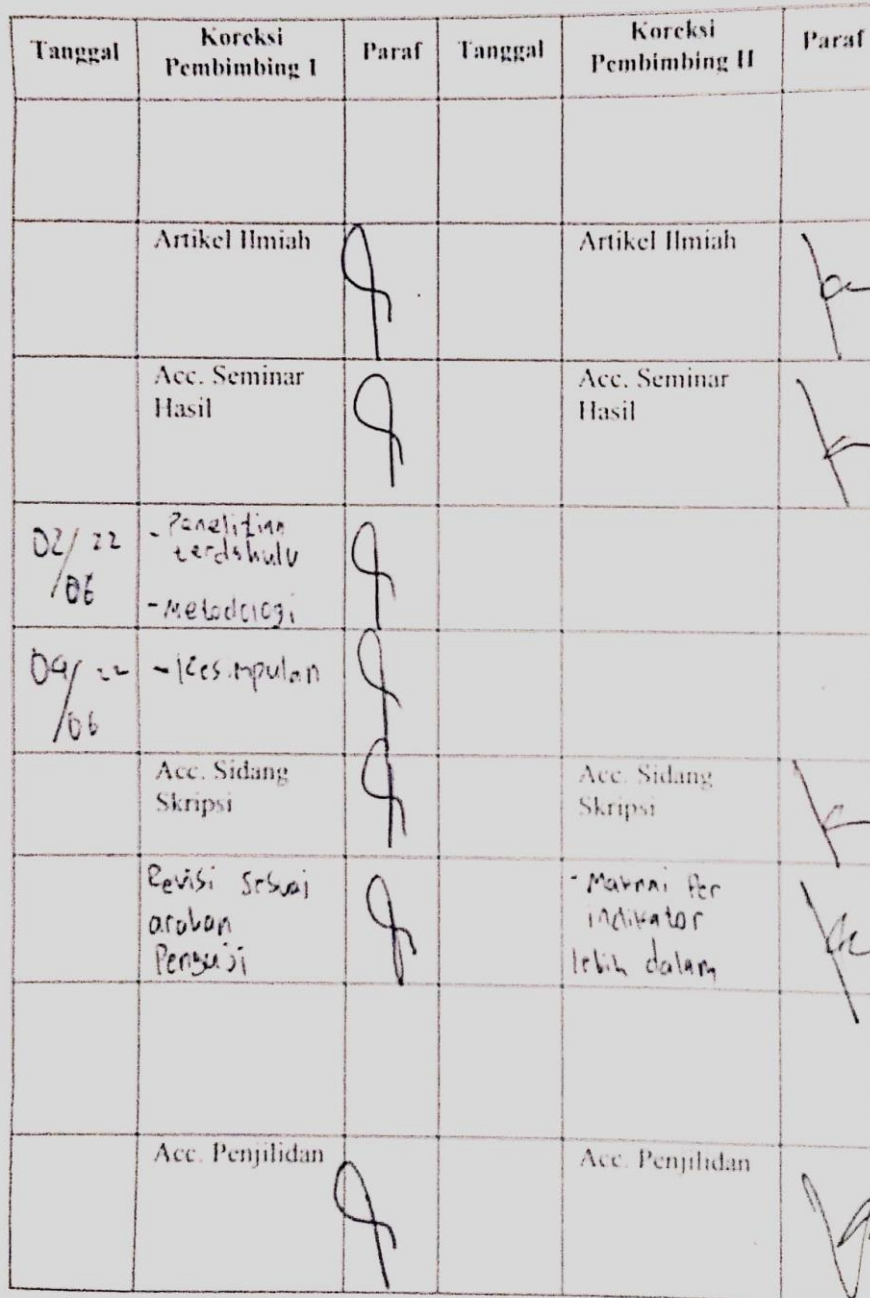 Tanggal Koreksi Pembimbing I Paraf Tanggal Koreksi Pembimbing II Paraf
Artikel Ilmiah Artikel Ilmiah
Acc. Seminar Acc. Seminar
Hasil Hasil
02/22 - Penelitian
/06 terdahulu
- Metodologi
09/22 - Kesimpulan
/06
Acc. Sidang Acc. Sidang
Skripsi Skripsi
Revisi sesuai - Maknai Per
arahan indikator
Penguji lebih dalam
Acc. Penjilidan Acc. Penjilidan